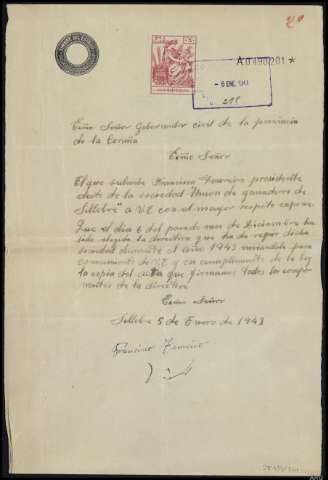 A0490201 *
- 6 ENE. 1943
Exmo Señor Gobernador civil de la provincia
de la Coruña
Exmo Señor
El que suscribe Francisco presidente
electo de la sociedad Union de ganaderos de
a V.E con el mayor respeto expone
Que el dia 6 del pasado mes de Diciembre ha
sido elegida la directiva que ha de regir dicha
sociedad durante el año 1943
conocimiento de V.E y en cumplimiento de la ley
la copia del acta que firmamos todos los compo-
nentes de la directiva
Exmo Señor
5 de Enero de 1943
Francisco